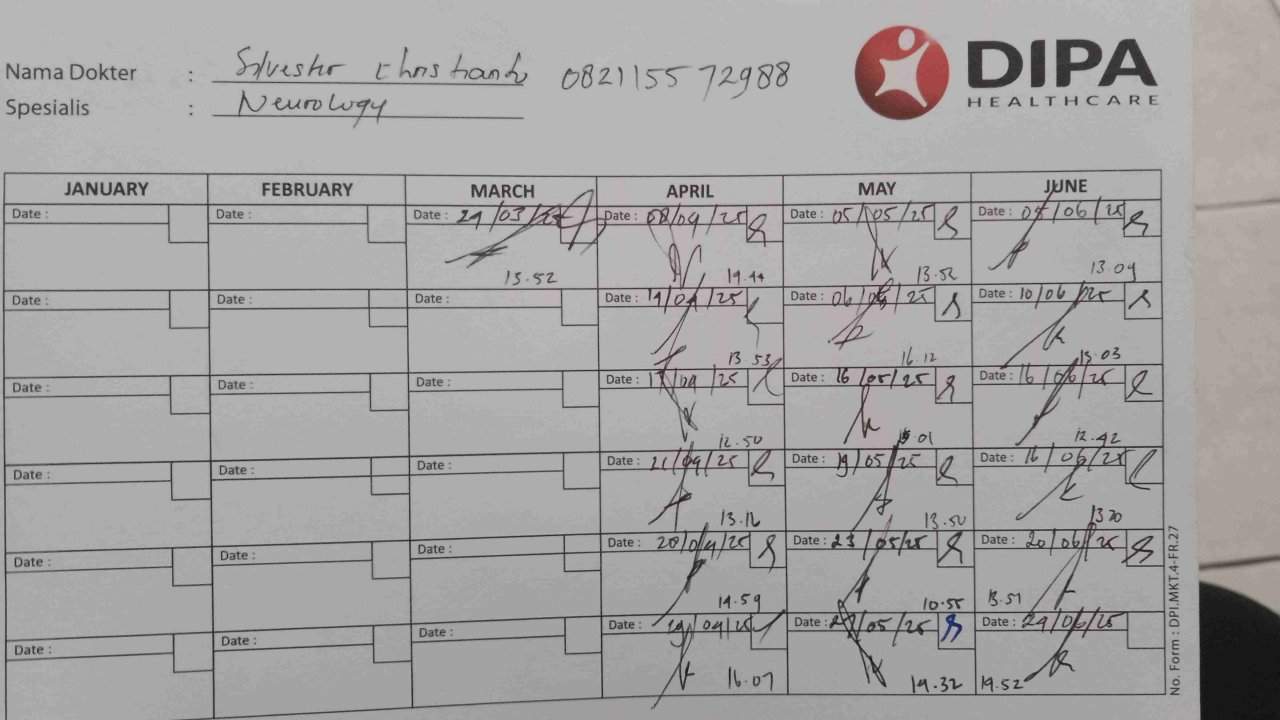 DIPA
HEALTHCARE
Nama Dokter : Silvester 082115572988
Spesialis : Neurology
JANUARY FEBRUARY MARCH APRIL MAY JUNE
Date : Date : Date : 29/03/25 Date : 08/04/25 Date : 05/05/25 Date : 05/06/25
15.52 14.44 13.52 13.04
Date : Date : Date : Date : 14/04/25 Date : 06/05/25 Date : 10/06/25
13.53 16.12 15.03
Date : Date : Date : Date : 17/04/25 Date : 16/05/25 Date : 16/06/25
12.50 15.01 12.42
Date : Date : Date : Date : 21/04/25 Date : 19/05/25 Date : 16/06/25
13.16 13.50 13.20
Date : Date : Date : Date : 28/04/25 Date : 23/05/25 Date : 20/06/25
14.59 10.55 13.51
Date : Date : Date : Date : 29/04/25 Date : /05/25 Date : 24/06/25
16.07 14.32 14.52
No. Form : DPI.MKT.4-FR.27